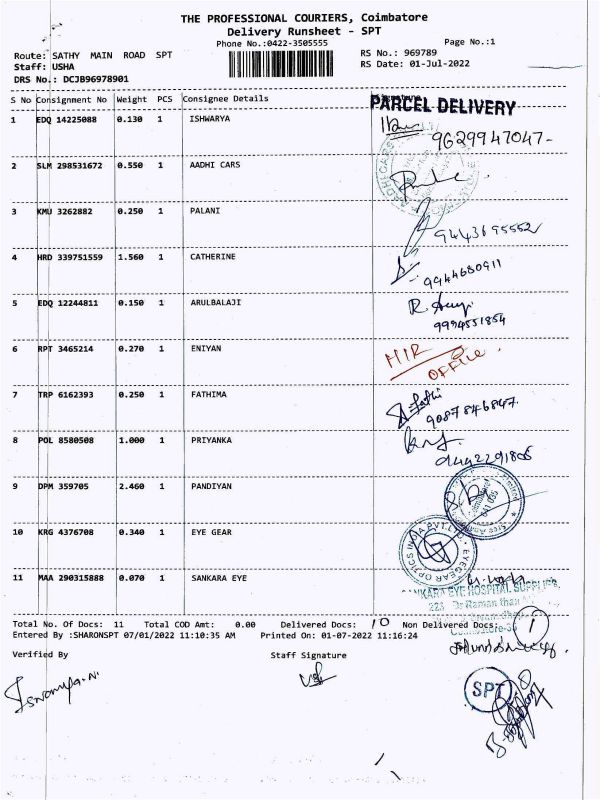 THE PROFESSIONAL COURIERS, Coimbatore
Delivery Runsheet - SPT
Phone No.:0422-3505555
Page No.:1
Route: SATHY MAIN ROAD SPT
RS No.: 969789
Staff: USHA
RS Date: 01-Jul-2022
DRS No.: DCJB96978901
S No Consignment No Weight PCS Consignee Details
PARCEL DELIVERY
1 EDQ 14225088 0.130 1 ISHWARYA
9629947047-
2 SLM 298531672 0.550 1 AADHI CARS
3 KMU 3262882 0.250 1 PALANI
9443695552
4 HRD 339751559 1.560 1 CATHERINE
9944680911
5 EDQ 12244811 0.150 1 ARULBALAJI
9994551854
6 RPT 3465214 0.270 1 ENIYAN
MIR
OFFICE.
7 TRP 6162393 0.250 1 FATHIMA
9087846847.
8 POL 8580508 1.000 1 PRIYANKA
9442291805
9 DPM 359705 2.460 1 PANDIYAN
10 KRG 4376708 0.340 1 EYE GEAR
EYEGEAR OPTICS INDIA PVT.LTD.
11 MAA 290315888 0.070 1 SANKARA EYE
SANKARA EYE HOSPITAL SUPPLIES
Total No. Of Docs: 11 Total COD Amt: 0.00 Delivered Docs: 10 Non Delivered Docs: 1
Entered By :SHARONSPT 07/01/2022 11:10:35 AM Printed On: 01-07-2022 11:16:24
Verified By Staff Signature
Iswarya.N
SPT